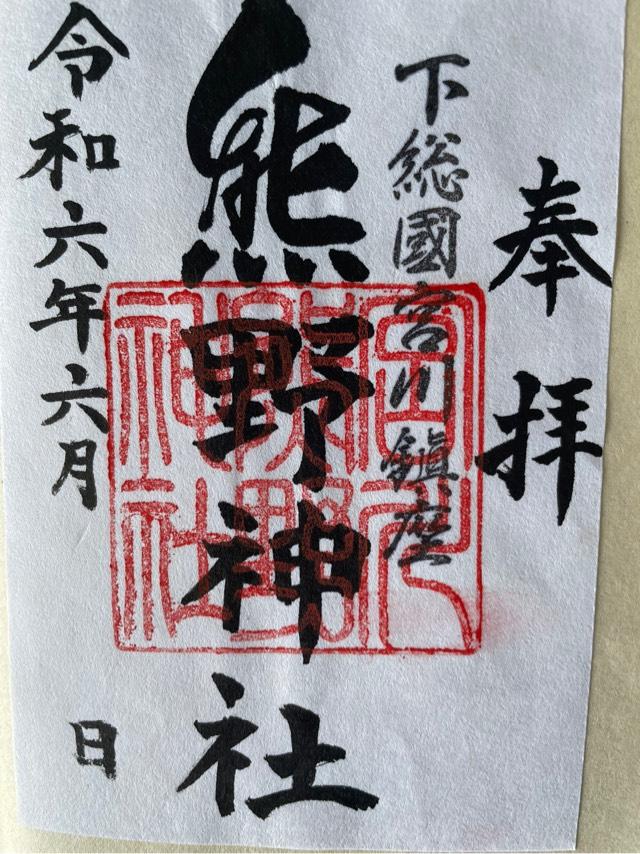 奉拝
下総國宮川鎮座
熊野神社
宮川熊野神社
令和六年六月 日